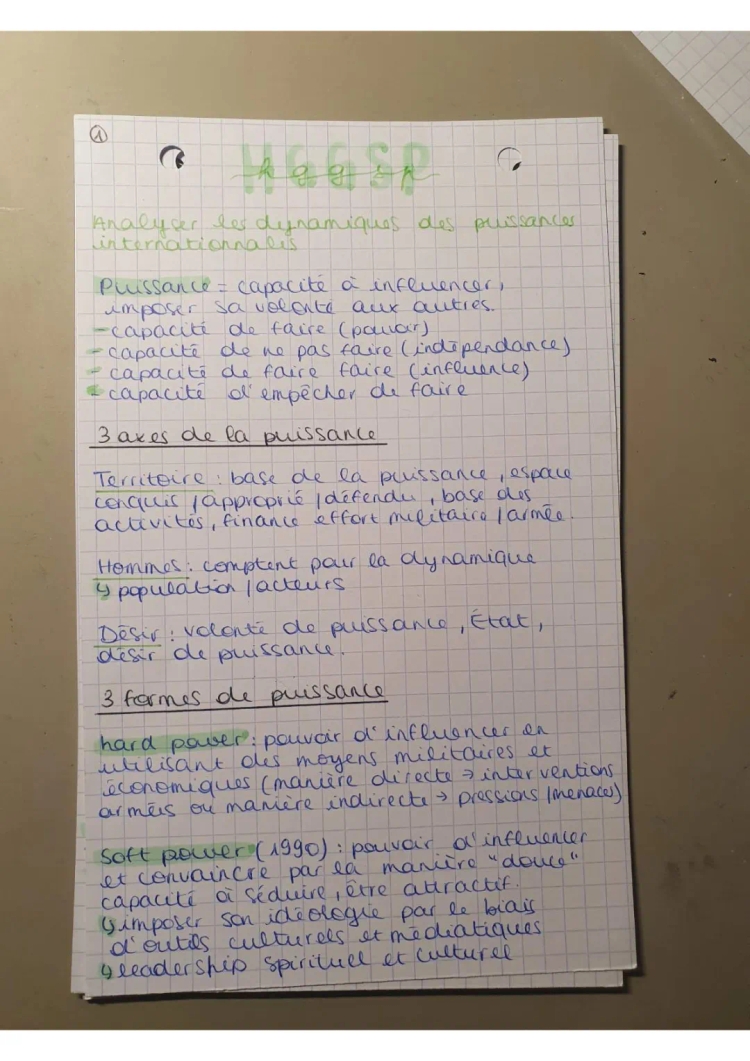 1
HGGSP
hggsp
Analyser les dynamiques des puissances
internationnales
Puissance = capacité à influencer,
imposer sa volonté aux autres.
- capacité de faire (pouvoir)
- capacité de ne pas faire (indépendance)
- capacité de faire faire (influence)
- capacité d'empêcher de faire
3 axes de la puissance
Territoire : base de la puissance, espace
conquis / approprié / défendu, base des
activités, finance effort militaire / armée.
Hommes : comptent pour la dynamique
↳ population / acteurs
Désir : volonté de puissance, État,
désir de puissance.
3 formes de puissance
hard power : pouvoir d'influencer en
utilisant des moyens militaires et
économiques (manière directe → interventions
armées ou manière indirecte → pressions / menaces)
Soft power (1990) : pouvoir d'influencer
et convaincre par la manière "douce"
capacité à séduire, être attractif.
↳ imposer son idéologie par le biais
d'outils culturels et médiatiques
↳ leadership spirituel et culturel